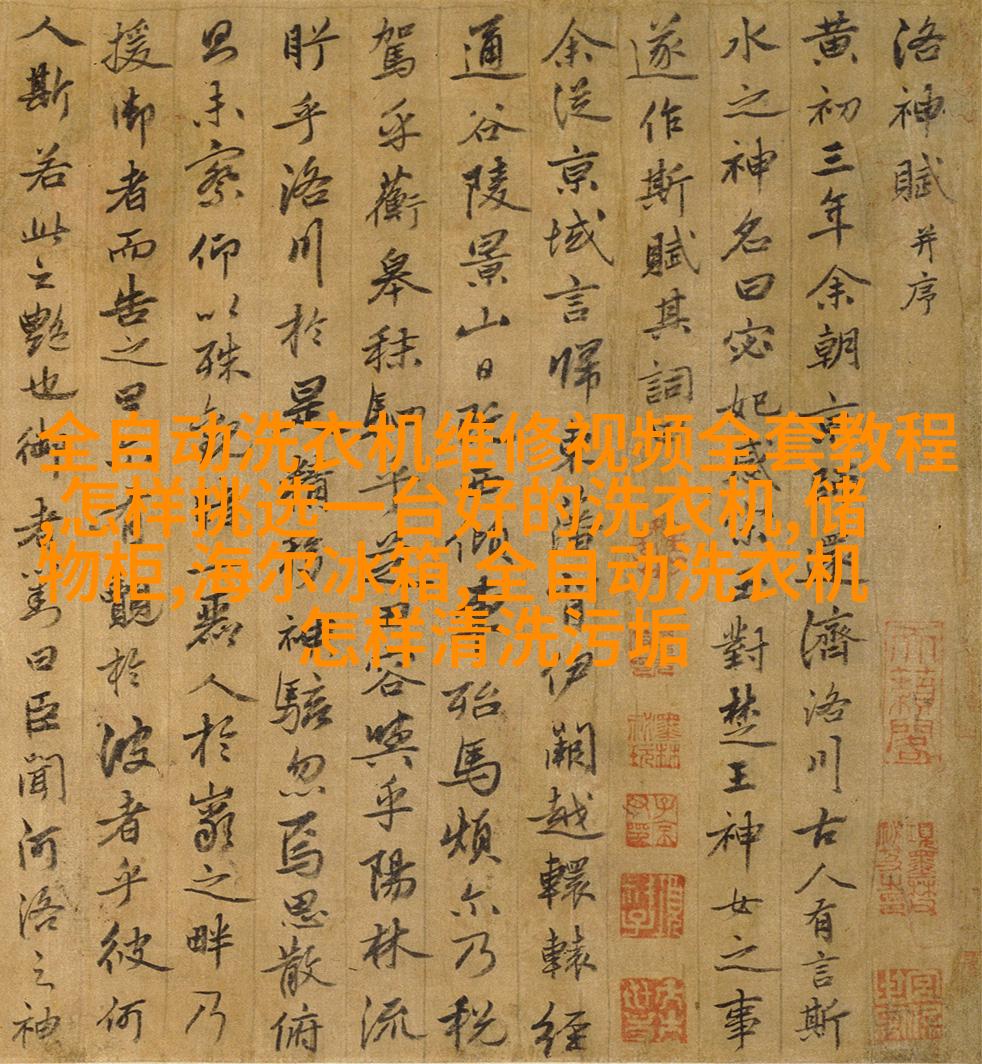 洛神賦 并序
黄初三年余朝京師還濟洛川古人有言斯
水之神名曰宓妃感宋玉對楚王神女之事
遂作斯賦其詞
余從京域言歸東藩背伊闕越轘轅經
通谷陵景山日既西傾車殆馬煩尒乃税
駕乎蘅皋秣駟乎芝田容與乎陽林流
眄乎洛川於是精移神駭忽焉思散俯
則未察仰以殊觀睹一麗人於巖之畔乃
援御者而告之曰尒有覿於彼者乎彼何
人斯若此之艷也御者對曰臣聞河洛之神
全自动洗衣机维修视频全套教程
,怎样挑选一台好的洗衣机,储
物柜,海尔冰箱,全自动洗衣机
怎样清洗污垢